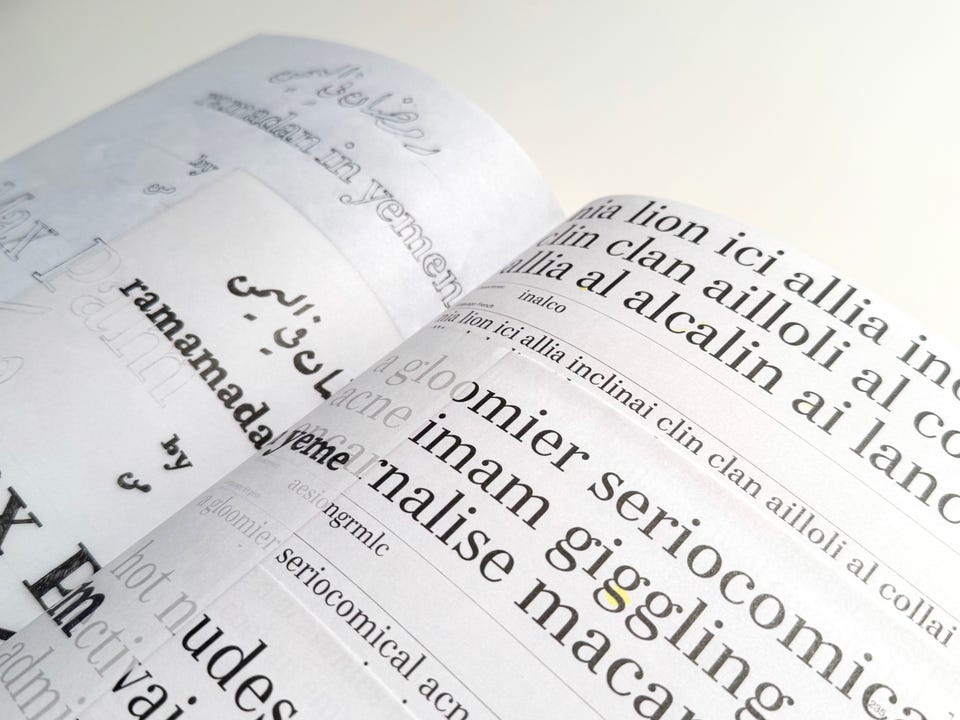 رمضان في اليمن
ramadan in yemen
by
من
Pain
في اليمن
ramamada
by
من
yeme
nia lion ici allia in
clin clan ailloli al co
allia al alcalin ai lano
inalco
nia lion ici allia inclinai clin clan ailloli al collai
a gloomier seriocomica
acne imam giggling
encarnalise maca
aesiongrmlc
a gloomier
seriocomical acn
hot nudes
ctivai
admi